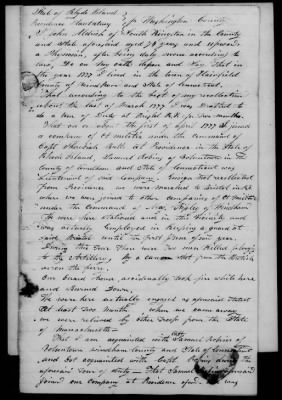 State of Rhode Island
Providence Plantations } ss Washington County
I John Aldrich of South Kingston in the County
and State aforesaid aged 78 years and upwards
a Physician, after being duly sworn according to
law, Do on my oath depose and Say That in
the year 1777 I lived in the town of Plainfield
County of Windham and State of Connecticut.
That according to the best of my recollection
about the last of March 1777 I was Drafted to
do a tour of Duty at Bristol R.I. for two months.
That on or about the first of April 1777 I joined
a company of militia under the command of
Capt at Providence in the State of
Rhode Island, Samuel Robins of Voluntown in the
County of Windham and State of Connecticut was
Lieutenant of our Company, Ensign not recollected
from Providence we were marched to Bristol R.I.
where we were joined to other companies of Militia
under the Command of of Windham
We were here stationed and in this Vicinity and
was actually Employed in keeping a guard at
said Bristol until the first June of said year.
During this time there was two men killed belonging
to the Artillery, By a cannon shot from the British
across the ferry.
Our Guard House accidentally took fire while here
and Burned Down.
We were here actually engaged as aforesaid stated
at least two months, when we came away
we were relieved by other troops from the State
of Massachusetts
That I am acquainted with Samuel Robins of
Voluntown Windham County and State of Connecticut
and got acquainted with Robins during the
aforesaid tour of duty That Samuel Robins aforesaid
joined our company at Providence and was